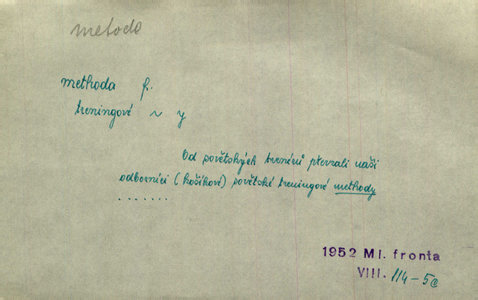 metoda
methoda f.
treningové ~ y
Od sovětských trenérů převzali naši
odborníci (košíkoví) sovětské treningové methody
.......
1952 Ml. fronta
VIII. 114-5c